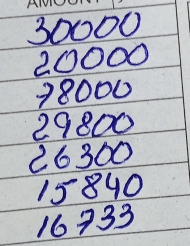 AMOUNT
30000
20000
78000
29800
26300
15840
16733